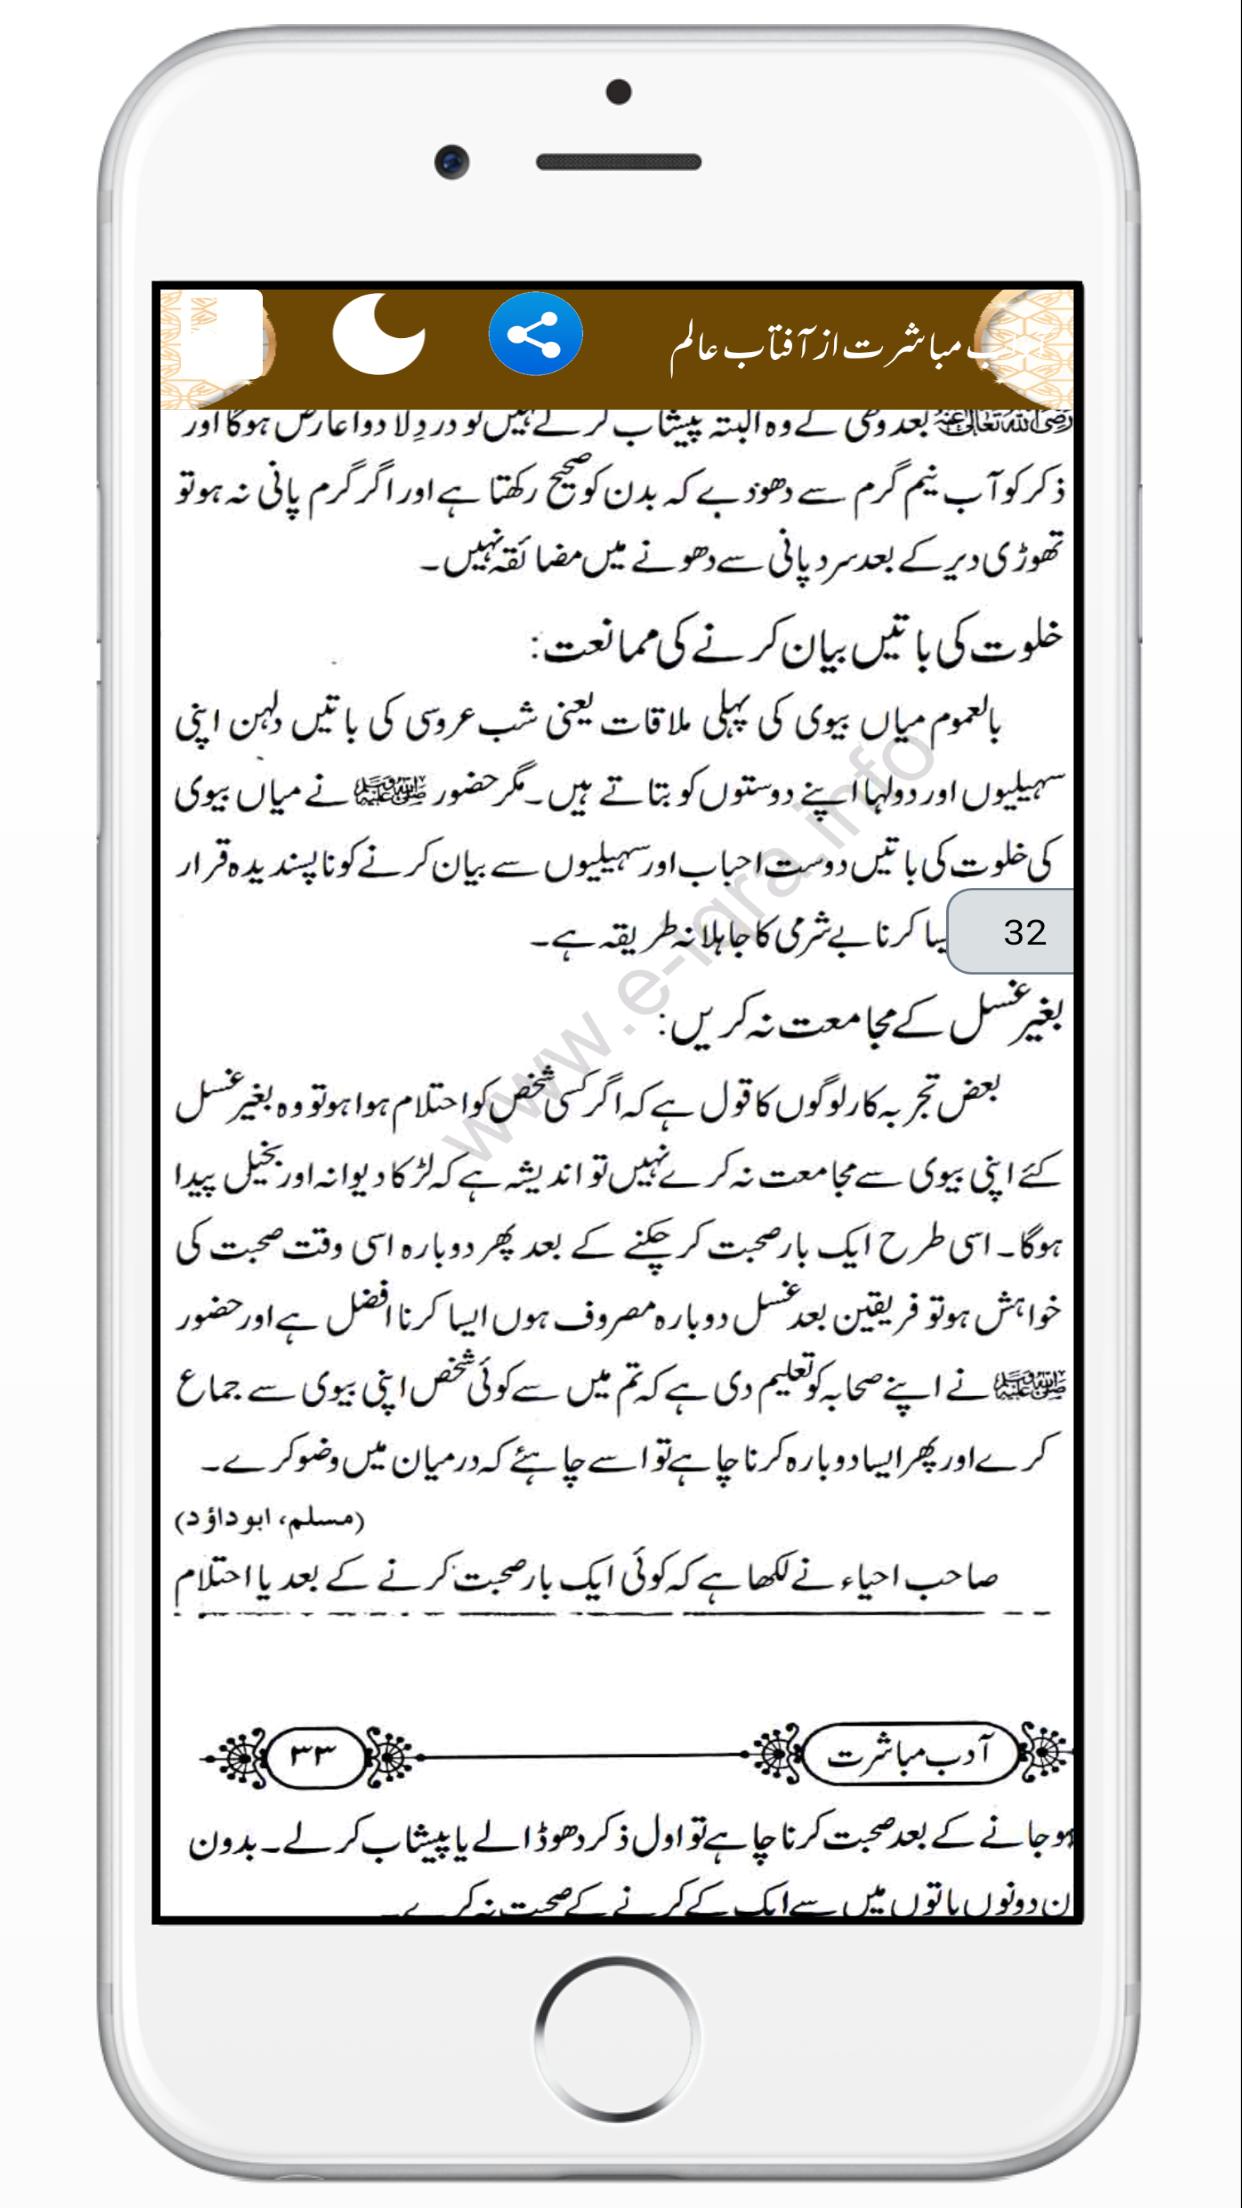 مباشرت از آفتاب عالم
بعد وطی کے وہ البتہ پیشاب کرلے نہیں تو دردِ لا دوا عارض ہوگا اور
ذکر کو آب نیم گرم سے دھودے کہ بدن کو صحیح رکھتا ہے اور اگر گرم پانی نہ ہو تو
تھوڑی دیر کے بعد سرد پانی سے دھونے میں مضائقہ نہیں۔
خلوت کی باتیں بیان کرنے کی ممانعت:
بالعموم میاں بیوی کی پہلی ملاقات یعنی شب عروسی کی باتیں دلہن اپنی
سہیلیوں اور دولہا اپنے دوستوں کو بتاتے ہیں۔ مگر حضور ﷺ نے میاں بیوی
کی خلوت کی باتیں دوست احباب اور سہیلیوں سے بیان کرنے کو ناپسندیدہ قرار
کرنا بے شرمی کا جاہلانہ طریقہ ہے۔
32
بغیر غسل کے مجامعت نہ کریں:
بعض تجربہ کار لوگوں کا قول ہے کہ اگر کسی شخص کو احتلام ہوا ہو تو وہ بغیر غسل
کئے اپنی بیوی سے مجامعت نہ کرے نہیں تو اندیشہ ہے کہ لڑکا دیوانہ اور بخیل پیدا
ہوگا۔ اسی طرح ایک بار صحبت کر چکنے کے بعد پھر دوبارہ اسی وقت صحبت کی
خواہش ہو تو فریقین بعد غسل دوبارہ مصروف ہوں ایسا کرنا افضل ہے اور حضور
ﷺ نے اپنے صحابہ کو تعلیم دی ہے کہ تم میں سے کوئی شخص اپنی بیوی سے جماع
کرے اور پھر ایسا دوبارہ کرنا چاہے تو اسے چاہئے کہ درمیان میں وضو کرے۔
(مسلم، ابو داؤد)
صاحب احیاء نے لکھا ہے کہ کوئی ایک بار صحبت کرنے کے بعد یا احتلام
آدب مباشرت
۳۳
ہو جانے کے بعد صحبت کرنا چاہے تو اول ذکر دھو ڈالے یا پیشاب کر لے۔ بدون
ان دونوں باتوں میں سے ایک کے کرنے کے صحبت نہ کرے۔
www.e-iqra.info